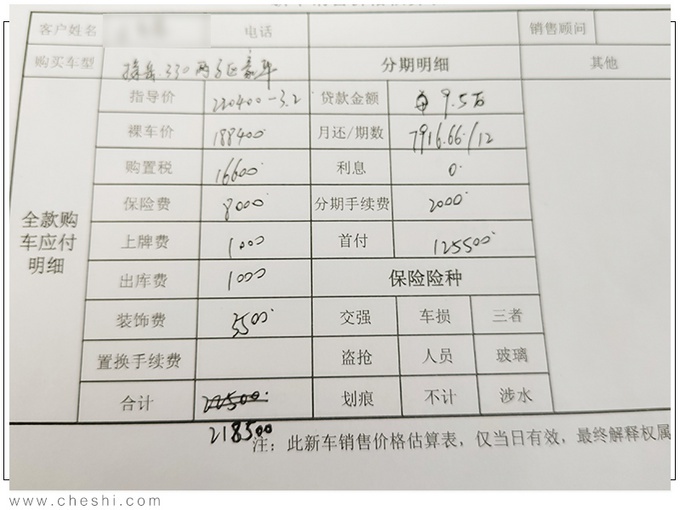 客户姓名 电话 销售顾问
购买车型 探岳330两驱豪华 分期明细 其他
指导价 220400-3.2 贷款金额 9.5万
裸车价 188400 月还/期数 7916.66/12
购置税 16600 利息 0
保险费 8000 分期手续费 2000
全款购车应付明细
上牌费 1000 首付 125500
出库费 1000 保险险种
装饰费 3500 交强 车损 三者
置换手续费 盗抢 人员 玻璃
合计 划痕 不计 涉水
218500
注：此新车销售价格估算表，仅当日有效，最终解释权属
www.cheshi.com